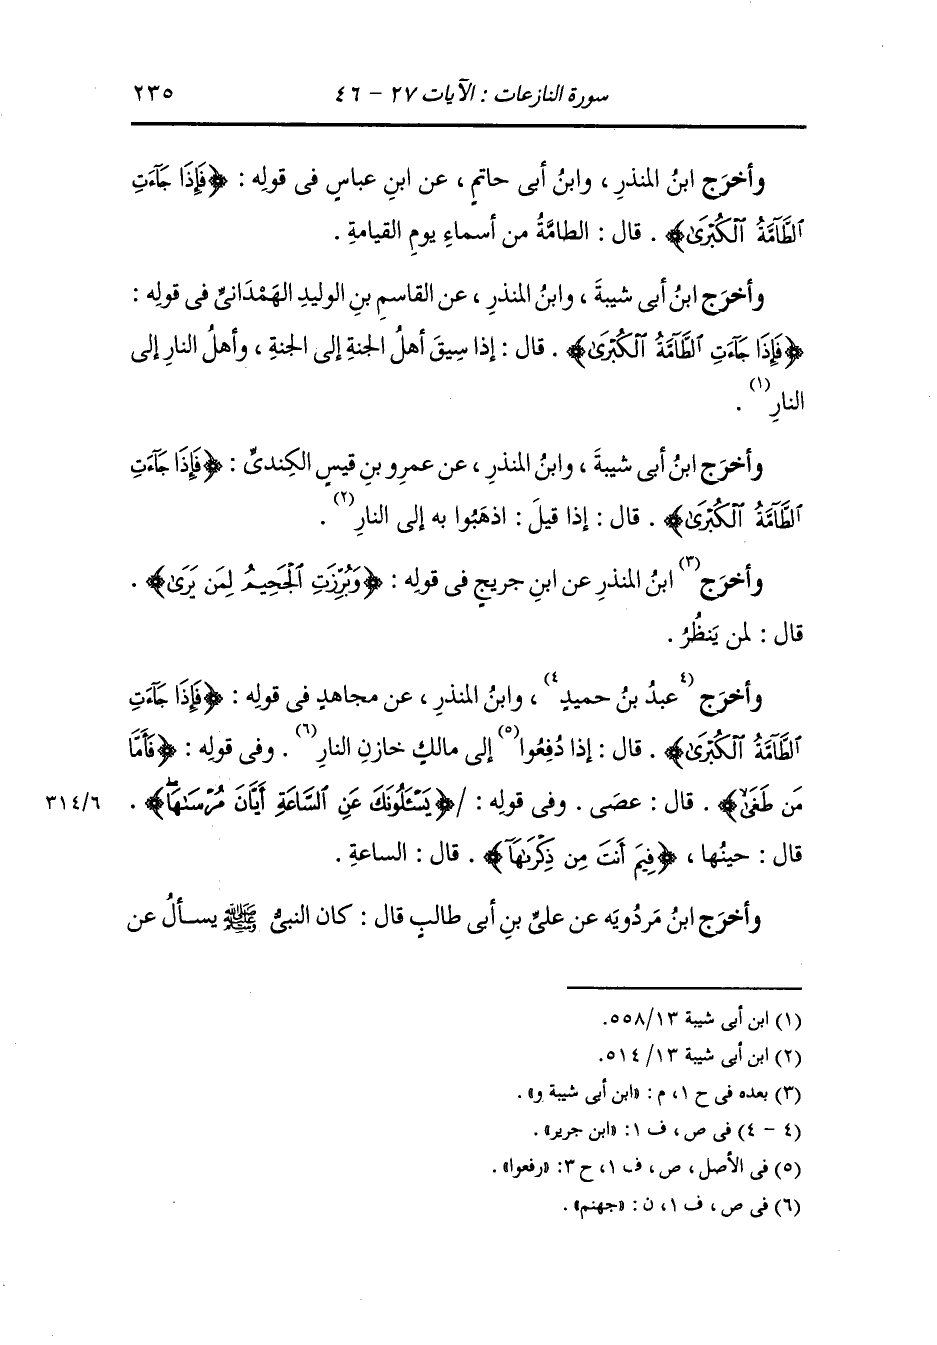 سورة النازعات : الآيات ٢٧ - ٤٦ ٢٣٥
وأخرَج ابنُ المنذرِ ، وابنُ أبى حاتمٍ ، عن ابنِ عباسٍ فى قولِه : ﴿فَإِذَا جَآءَتِ
ٱلطَّآمَّةُ ٱلْكُبْرَىٰ﴾ . قال : الطامَّةُ من أسماءِ يومِ القيامةِ .
وأخرَج ابنُ أبى شيبةَ ، وابنُ المنذرِ ، عن القاسمِ بنِ الوليدِ الهَمْدَانىِّ فى قولِه :
﴿فَإِذَا جَآءَتِ ٱلطَّآمَّةُ ٱلْكُبْرَىٰ﴾ . قال : إذا سِيقَ أهلُ الجنةِ إلى الجنةِ ، وأهلُ النارِ إلى
النارِ(١) .
وأخرَج ابنُ أبى شيبةَ ، وابنُ المنذرِ ، عن عمرِو بنِ قيسٍ الكِندىِّ : ﴿فَإِذَا جَآءَتِ
ٱلطَّآمَّةُ ٱلْكُبْرَىٰ﴾ . قال : إذا قيلَ : اذهَبُوا به إلى النارِ(٢) .
وأخرَج(٣) ابنُ المنذرِ عن ابنِ جريجٍ فى قولِه : ﴿وَبُرِّزَتِ ٱلْجَحِيمُ لِمَن يَرَىٰ﴾ .
قال : لمن يَنظُرُ .
وأخرَج (٤عبدُ بنُ حميدٍ٤) ، وابنُ المنذرِ ، عن مجاهدٍ فى قولِه : ﴿فَإِذَا جَآءَتِ
ٱلطَّآمَّةُ ٱلْكُبْرَىٰ﴾ . قال : إذا دُفِعُوا(٥) إلى مالكٍ خازنِ النارِ(٦) . وفى قولِه : ﴿فَأَمَّا
مَن طَغَىٰ﴾ . قال : عصَى . وفى قولِه : /﴿يَسْـَٔلُونَكَ عَنِ ٱلسَّاعَةِ أَيَّانَ مُرْسَىٰهَا﴾ . ٣١٤/٦
قال : حينُها ، ﴿فِيمَ أَنتَ مِن ذِكْرَىٰهَآ﴾ . قال : الساعةِ .
وأخرَج ابنُ مَردُويَه عن علىِّ بنِ أبى طالبٍ قال : كان النبىُّ ﷺ يسألُ عن
(١) ابن أبى شيبة ٥٥٨/١٣.
(٢) ابن أبى شيبة ٥١٤/١٣.
(٣) بعده فى ح ١، م : «ابن أبى شيبة و» .
(٤ - ٤) فى ص ، ف ١: «ابن جرير» .
(٥) فى الأصل ، ص ، ف ١، ح ٣: «رفعوا» .
(٦) فى ص ، ف ١، ن : «جهنم» .